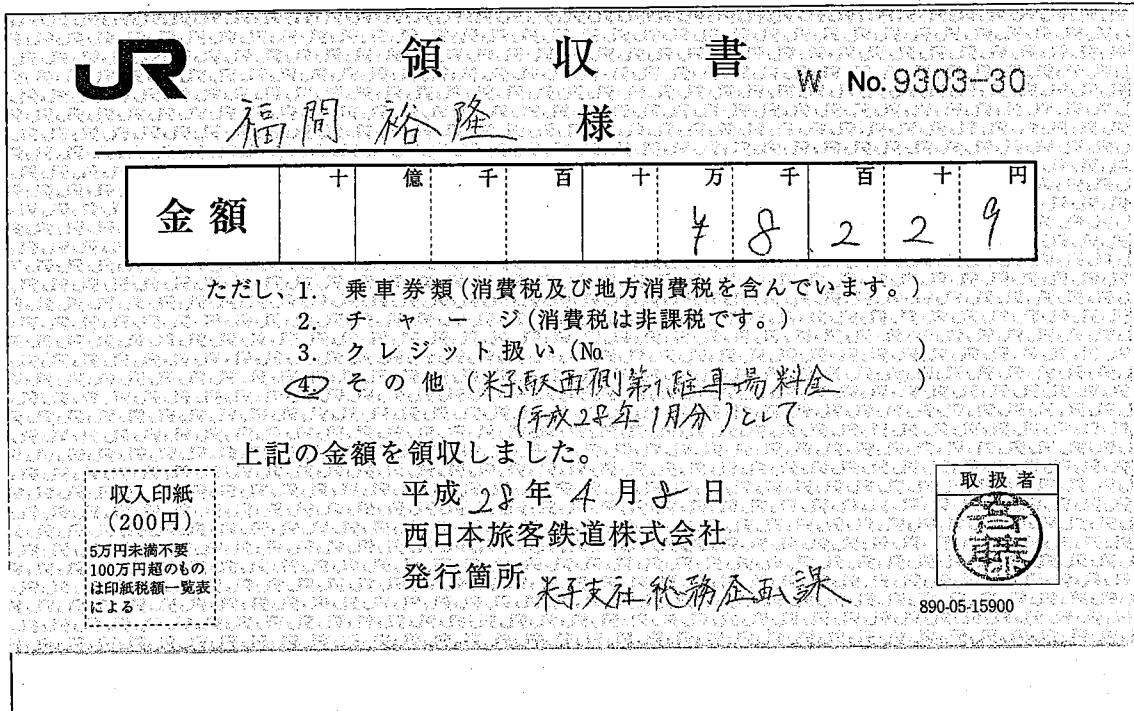 JR 領収書 W No.9303-30
福間 裕隆 様
金額 十 億 千 百 十 万 千 百 十 円
¥ 8 2 2 9
ただし、1. 乗車券類(消費税及び地方消費税を含んでいます。)
2. チャージ(消費税は非課税です。)
3. クレジット扱い(No. )
4. その他(米子駅西側第1駐車場料金 )
(平成28年1月分)として
上記の金額を領収しました。
平成28年4月8日
西日本旅客鉄道株式会社
発行箇所 米子支社総務企画課
収入印紙
(200円)
5万円未満不要
100万円超のもの
は印紙税額一覧表
による
取扱者
890-05-15900